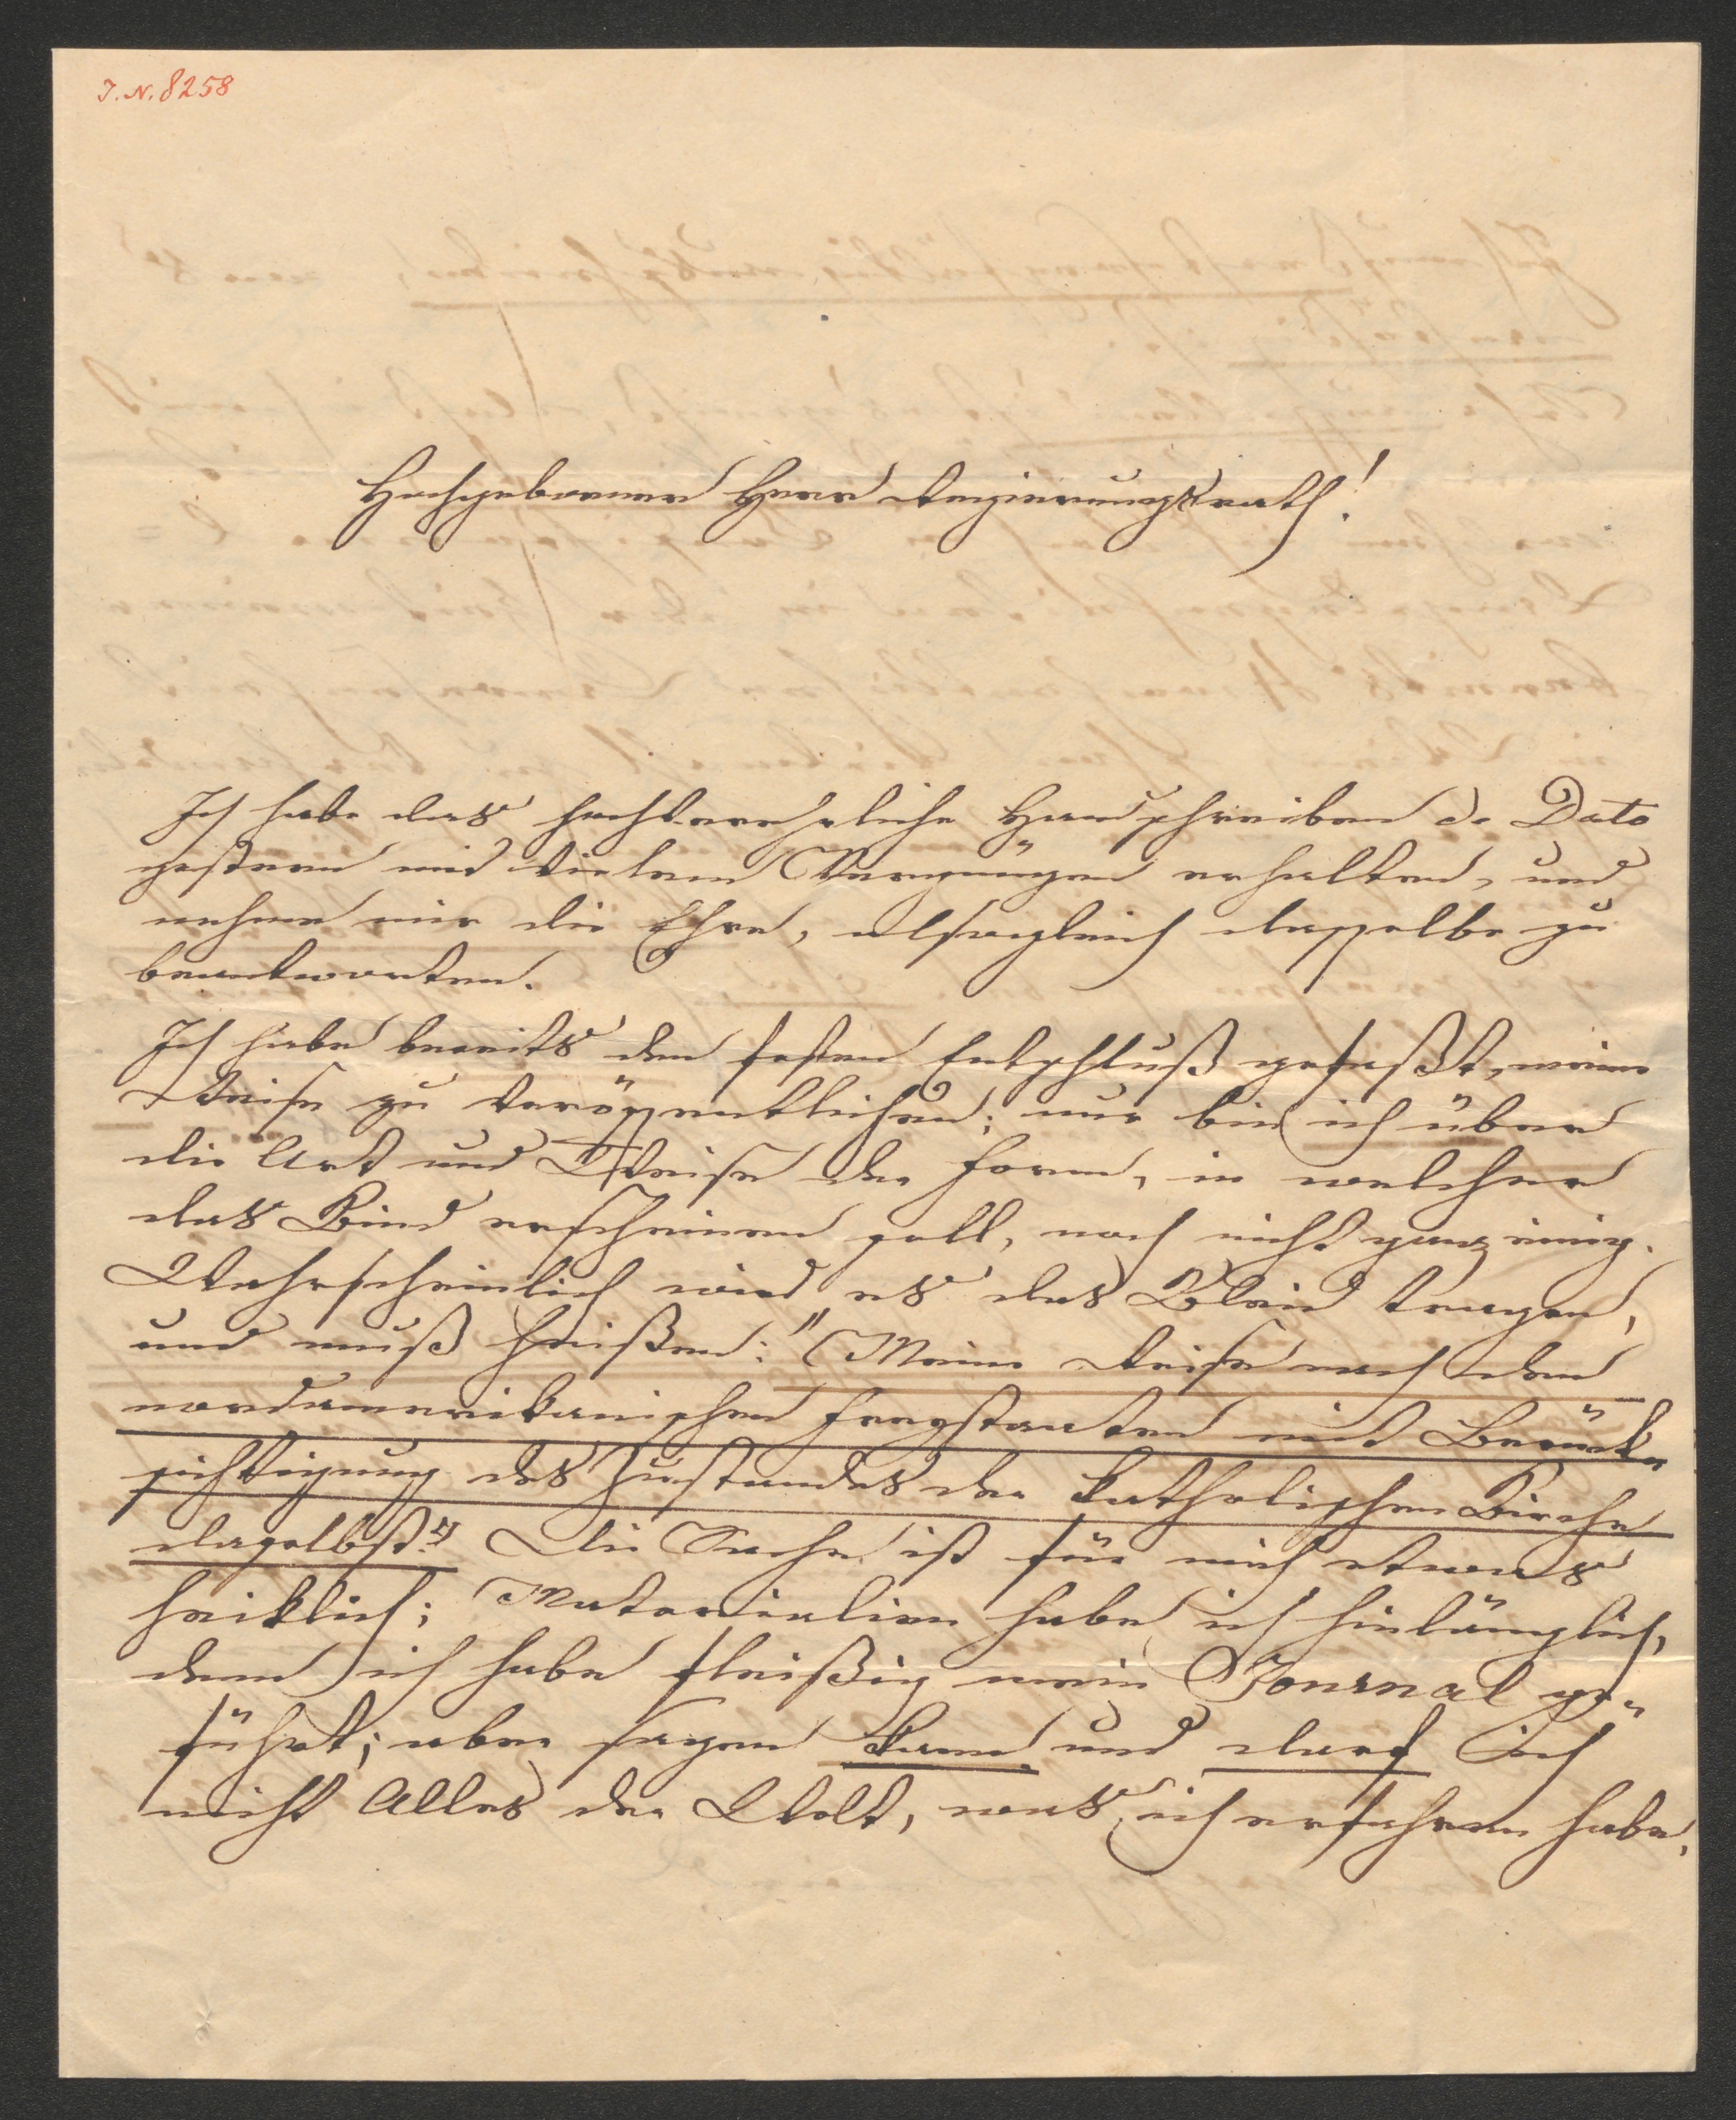 J. N. 8258
Hochgeborner Herr Regierungsrath!
Ich habe das hochverehrliche Handschreiben de Dato
gestern mit vielem Vergnügen erhalten, und
nehme mir die Ehre, alsogleich dasselbe zu
beantworten.
Ich habe bereits den festen Entschluß gefaßt, meine
Reise zu veröffentlichen; nur bin ich über
die Art und Weise der Form, in welcher
das Kind erscheinen soll, noch nicht ganz einig.
Wahrscheinlich wird es das Kleid tragen,
und muß heißen: "Meine Reise nach den
nordamerikanischen Freystaaten mit Berück-
sichtigung des Zustandes der katholischen Kirche
daselbst" Die Sache ist für mich etwas
heiklich; Materialien habe ich hinlänglich,
denn ich habe fleißig mein Journal ge-
führt; aber sagen kann und darf ich
nicht Alles der Welt, was ich erfahren habe.